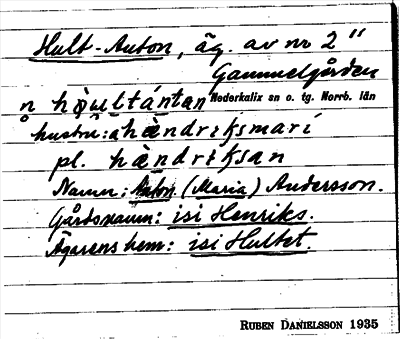 Hult-Anton, äg. av nr 2"
Gammelgården
n hòultántan Nederkalix sn o. tg. Norrb. län
hustru: hændrıksmarí
pl. hændrıksan
Namn: Anton (Maria) Andersson.
Gårdsnamn: isi Henriks.
Ägarens hem: isi Hultet.
RUBEN DANIELSSON 1935